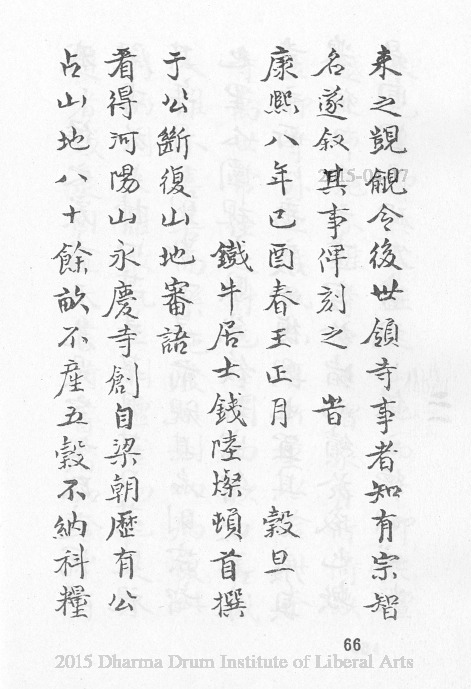 来之覬覦令後世領寺事者知有宗智
名遂叙其事俾刻之　旹
康熙八年己酉春王正月　穀旦
鐵牛居士錢陸燦頓首撰
于公斷復山地審語
看得河陽山永慶寺創自梁朝歷有公
占山地八十餘畝不産五穀不納科糧
66
2015 Dharma Drum Institute of Liberal Arts